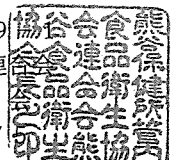 熊谷保健所管
食品衛生協
会連合会熊
谷食品衛生
協会之印